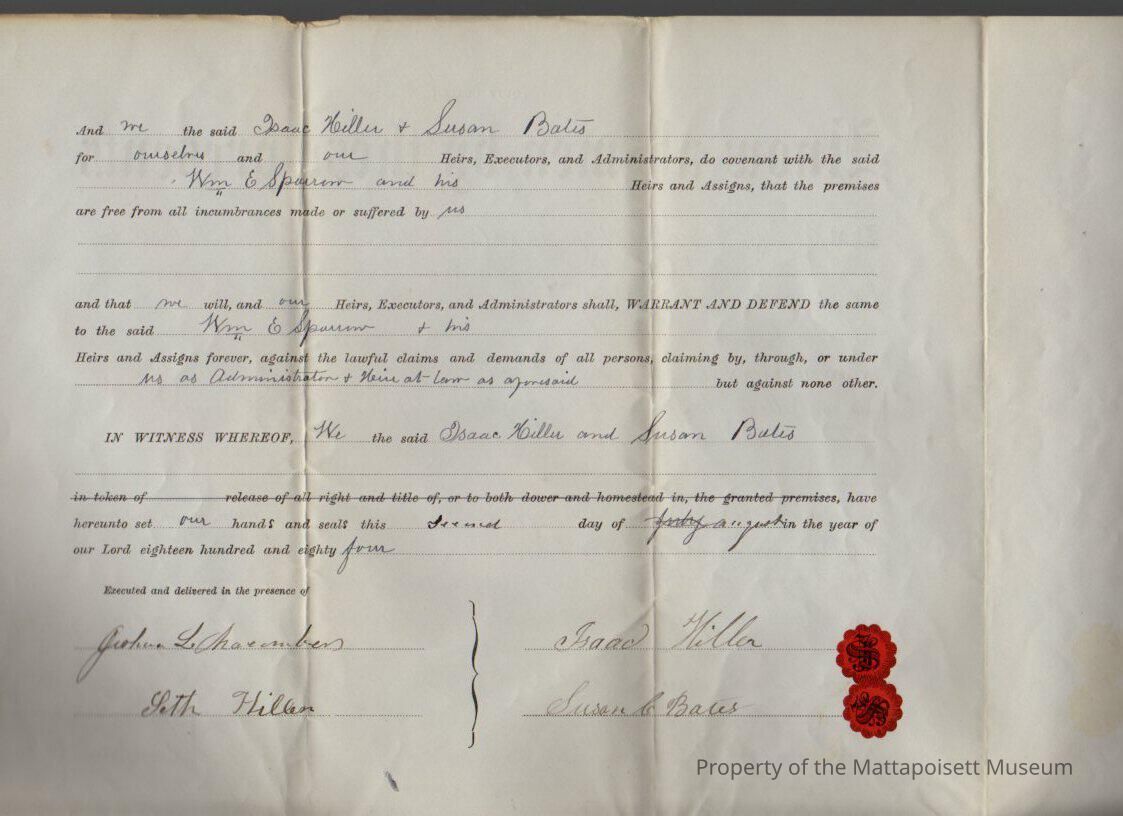 And we the said Isaac Hiller & Susan Bates
for ourselves and our Heirs, Executors, and Administrators, do covenant with the said
Wm E Sparrow and his Heirs and Assigns, that the premises
are free from all incumbrances made or suffered by us
and that we will, and our Heirs, Executors, and Administrators shall, WARRANT AND DEFEND the same
to the said Wm E Sparrow & his
Heirs and Assigns forever, against the lawful claims and demands of all persons, claiming by, through, or under
us as Administrator & Heir at Law as aforesaid but against none other.
IN WITNESS WHEREOF, We the said Isaac Hiller and Susan Bates
in token of release of all right and title of, or to both dower and homestead in, the granted premises, have
hereunto set our hands and seals this second day of august in the year of
our Lord eighteen hundred and eighty four
Executed and delivered in the presence of
L Isaac Hiller
Seth Hiller Susan C Bates
Property of the Mattapoisett Museum